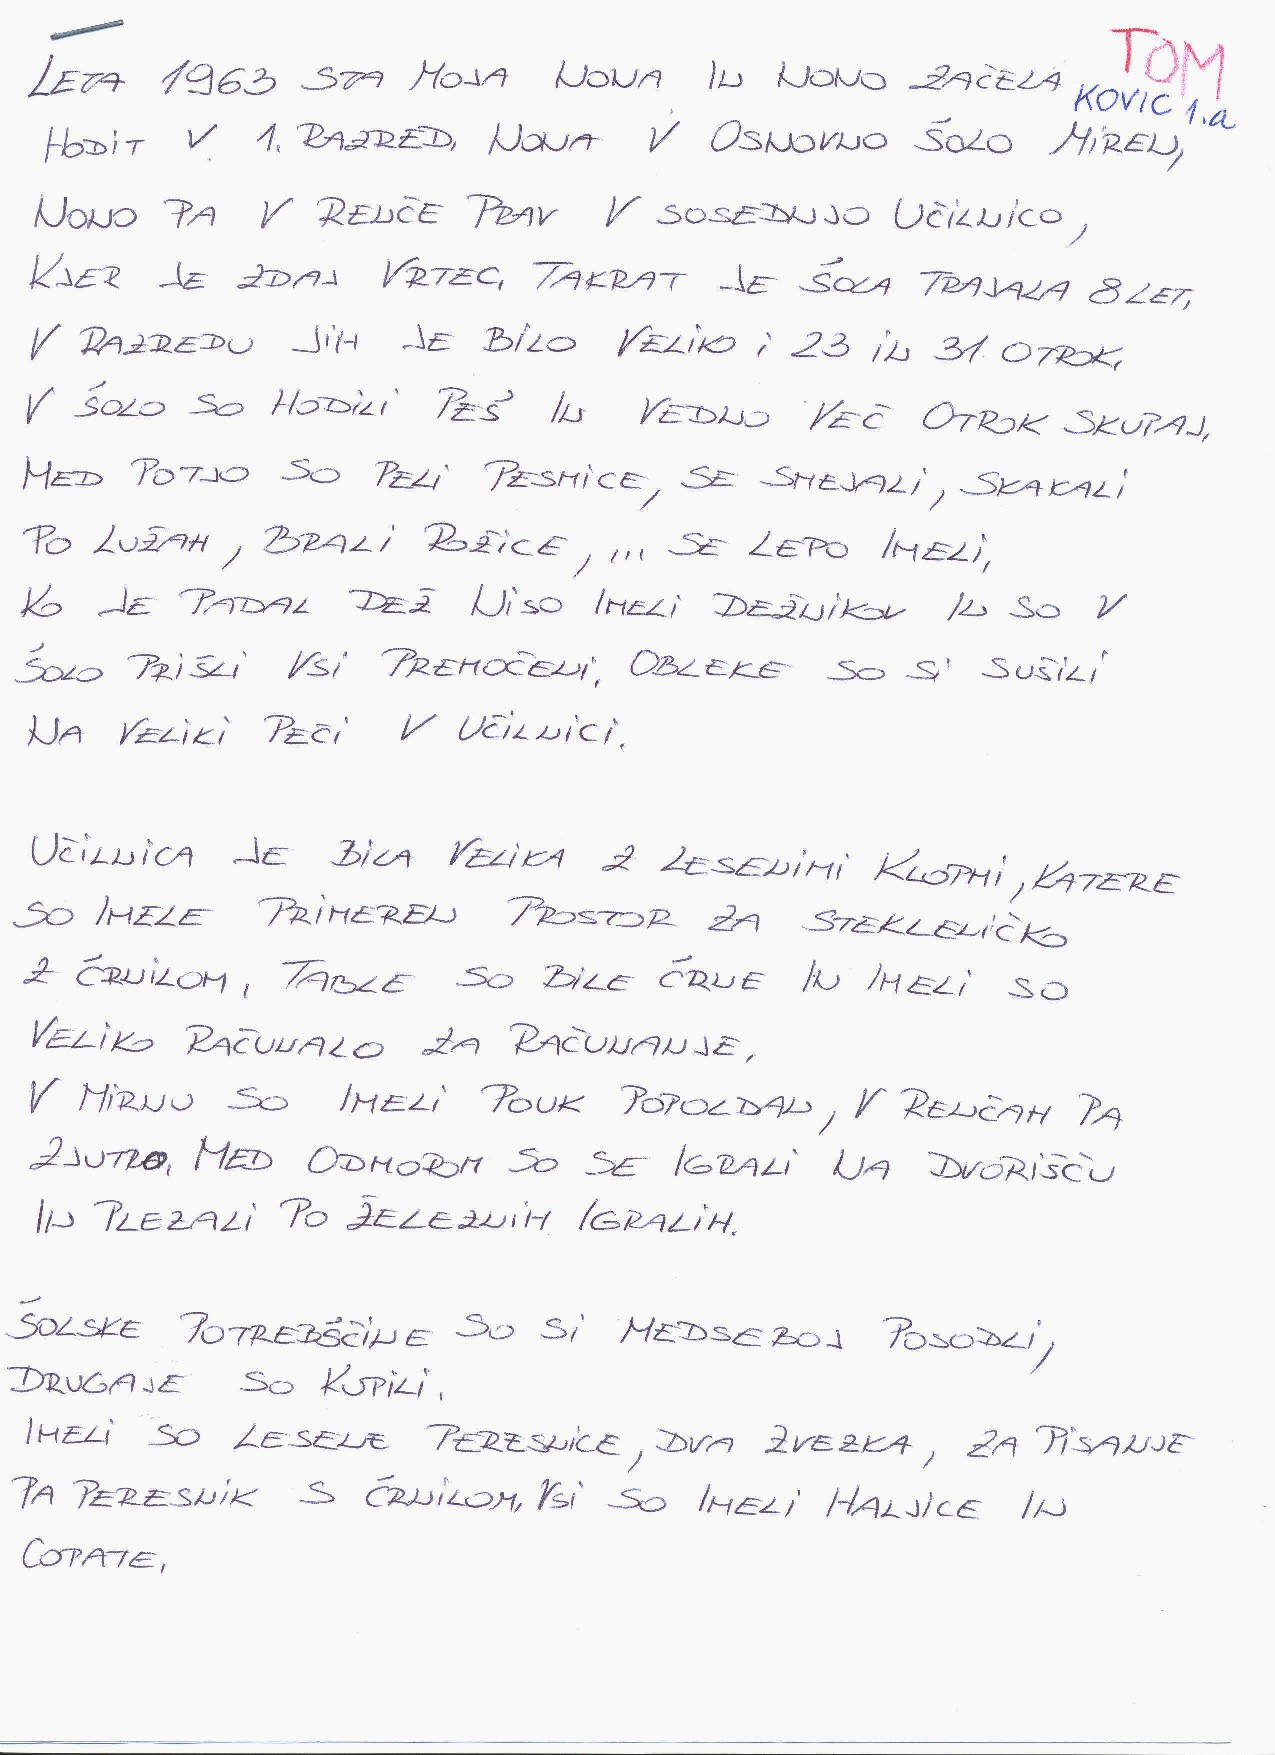 TOM
KOVIC 1.a
LETA 1963 STA MOJA NONA IN NONO ZAČELA
HODIT V 1. RAZRED, NONA V OSNOVNO ŠOLO MIREN,
NONO PA V RENČE PRAV V SOSEDNJO UČILNICO,
KJER JE ZDAJ VRTEC. TAKRAT JE ŠOLA TRAJALA 8 LET,
V RAZREDU JIH JE BILO VELIKO; 23 IN 31 OTROK.
V ŠOLO SO HODILI PEŠ IN VEDNO VEČ OTROK SKUPAJ,
MED POTJO SO PELI PESMICE, SE SMEJALI, SKAKALI
PO LUŽAH, BRALI ROŽICE, ... SE LEPO IMELI,
KO JE PADAL DEŽ NISO IMELI DEŽNIKOV IN SO V
ŠOLO PRIŠLI VSI PREMOČENI, OBLEKE SO SI SUŠILI
NA VELIKI PEČI V UČILNICI.
UČILNICA JE BILA VELIKA Z LESENIMI KLOPMI, KATERE
SO IMELE PRIMEREN PROSTOR ZA STEKLENIČKO
Z ČRNILOM, TABLE SO BILE ČRNE IN IMELI SO
VELIKO RAČUNALO ZA RAČUNANJE,
V MIRNU SO IMELI POUK POPOLDAN, V RENČAH PA
ZJUTRO, MED ODMOROM SO SE IGRALI NA DVORIŠČU
IN PLEZALI PO ŽELEZNIH IGRALIH.
ŠOLSKE POTREBŠČINE SO SI MEDSEBOJ POSODLI,
DRUGAJE SO KUPILI,
IMELI SO LESENE PERESNICE, DVA ZVEZKA, ZA PISANJE
PA PERESNIK S ČRNILOM, VSI SO IMELI HALJICE IN
COPATE,